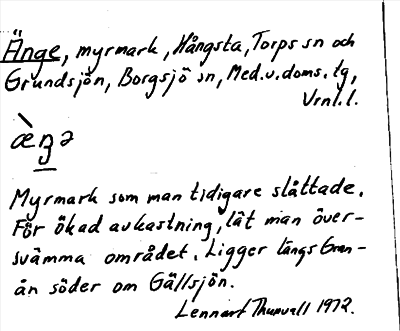 Änge, myrmark, Hångsta, Torps sn och
Grundsjön, Borgsjö sn, Med.v.doms.tg,
Vrnl.l.
æ̀ŋə
Myrmark som man tidigare slåttade.
För ökad avkastning, lät man över-
svämma området. Ligger längs Gran-
ån söder om Gällsjön.
Lennart Thunvall 1972.